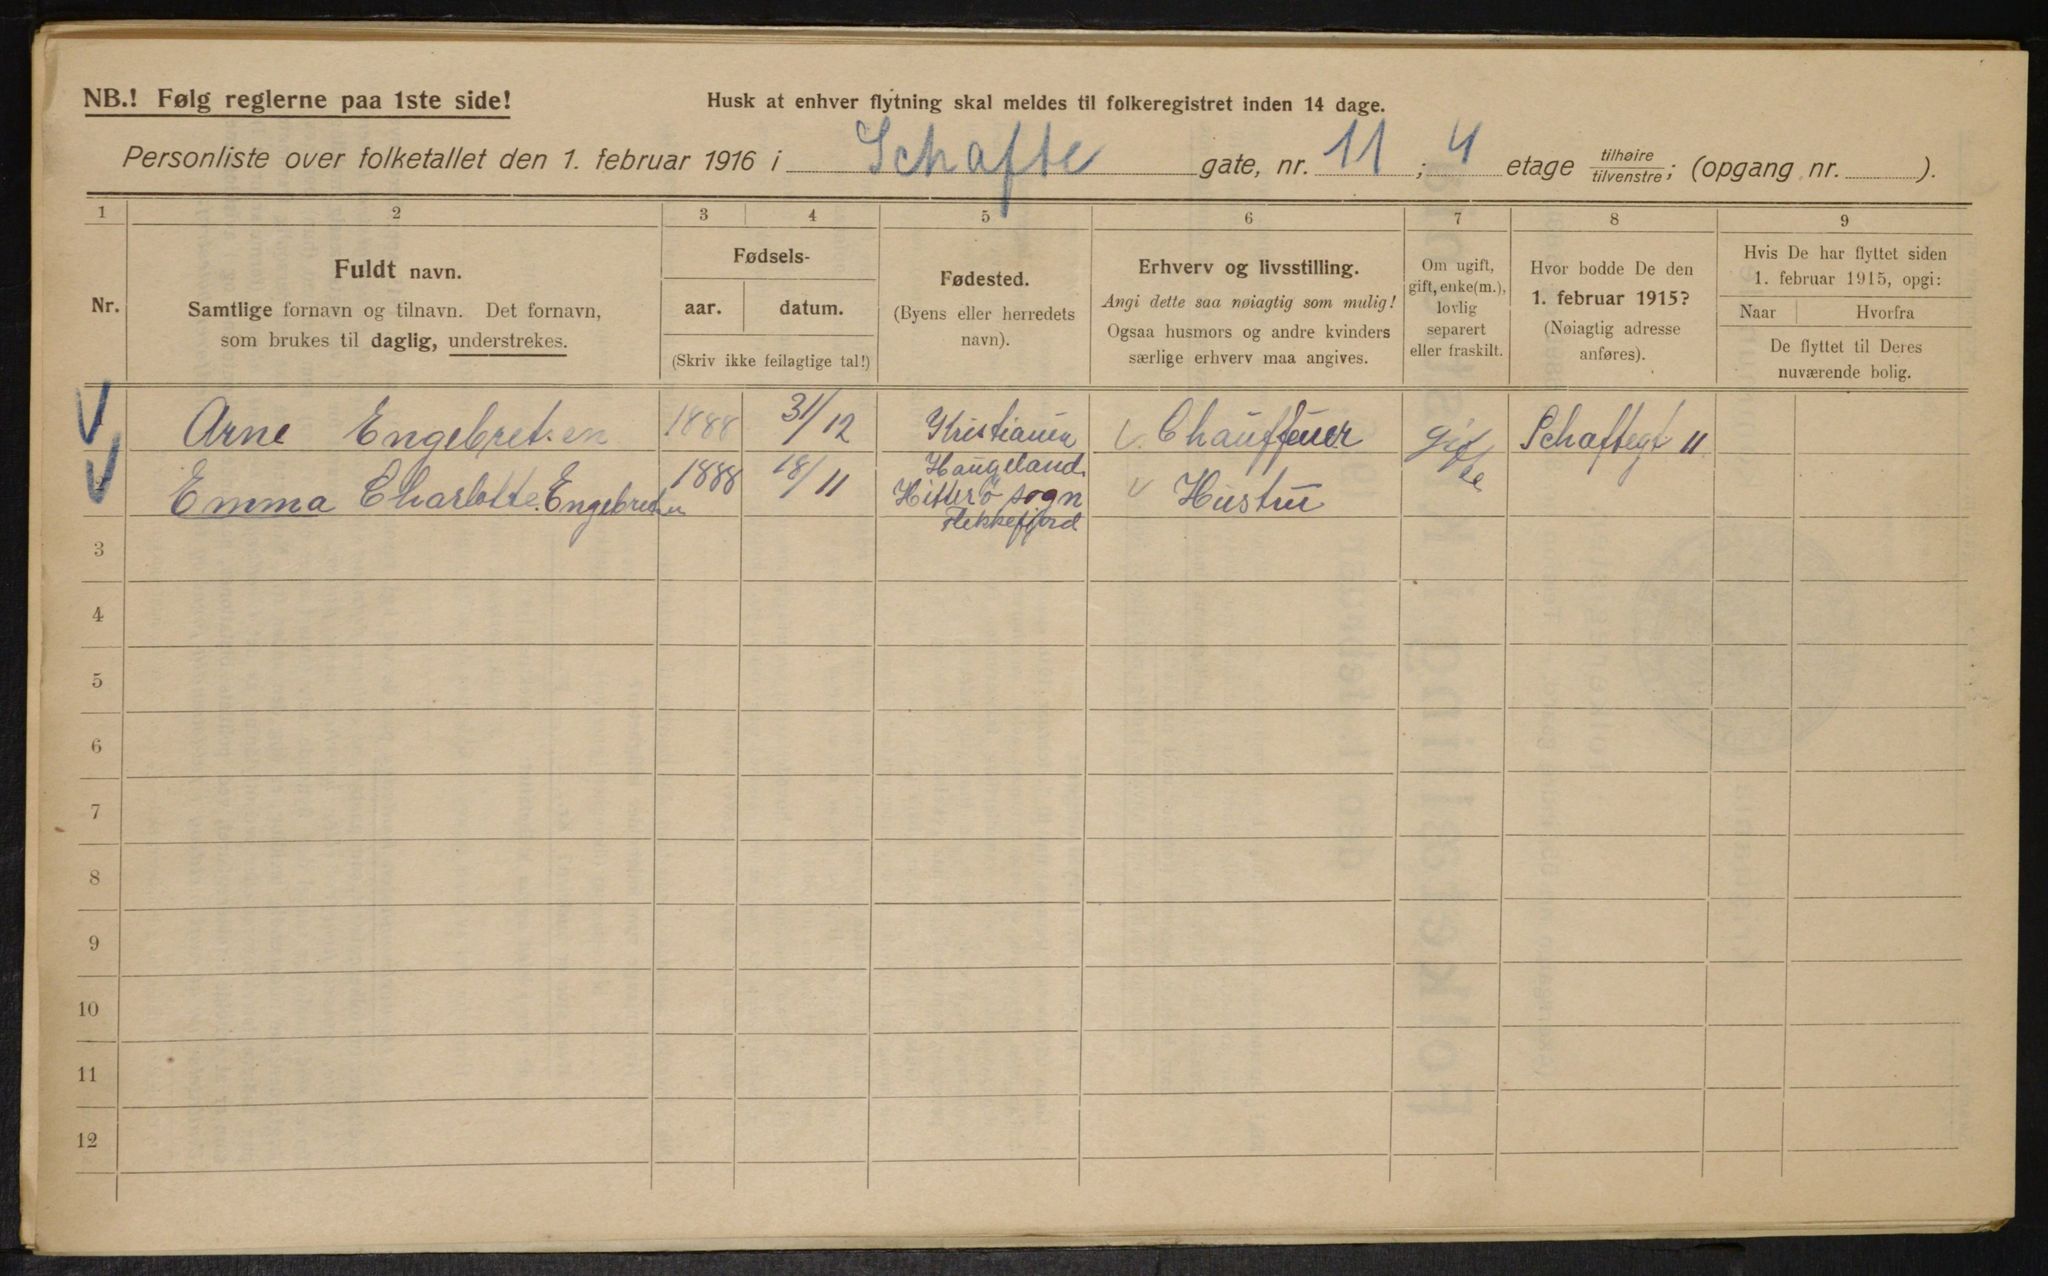 NB.! Følg reglerne paa 1ste side!
Husk at enhver flytning skal meldes til folkeregistret inden 14 dage.
Personliste over folketallet den 1. februar 1916 i Schafte gate, nr. 11 ; 4 etage tilhøire tilvenstre; (opgang nr. ).
1 2 3 4 5 6 7 8 9
Nr.
Fuldt navn.
Samtlige fornavn og tilnavn. Det fornavn,
som brukes til daglig, understrekes.
Fødsels-
aar. datum.
(Skriv ikke feilagtige tal!)
Fødested.
(Byens eller herredets
navn).
Erhverv og livsstilling.
Angi dette saa nøiagtig som mulig!
Ogsaa husmors og andre kvinders
særlige erhverv maa angives.
Om ugift,
gift, enke(m.),
lovlig
separert
eller fraskilt.
Hvor bodde De den
1. februar 1915?
(Nøiagtig adresse
anføres).
Hvis De har flyttet siden
1. februar 1915, opgi:
Naar Hvorfra
De flyttet til Deres
nuværende bolig.
Arne Engebretsen 1888 31/12 Chauffeuer gifte Schaftegt 11
Emma Charlotte Engebretsen 1888 18/11 Haugeland Hustru
Hitterö sogn
Flekkefjord
3
4
5
6
7
8
9
10
11
12